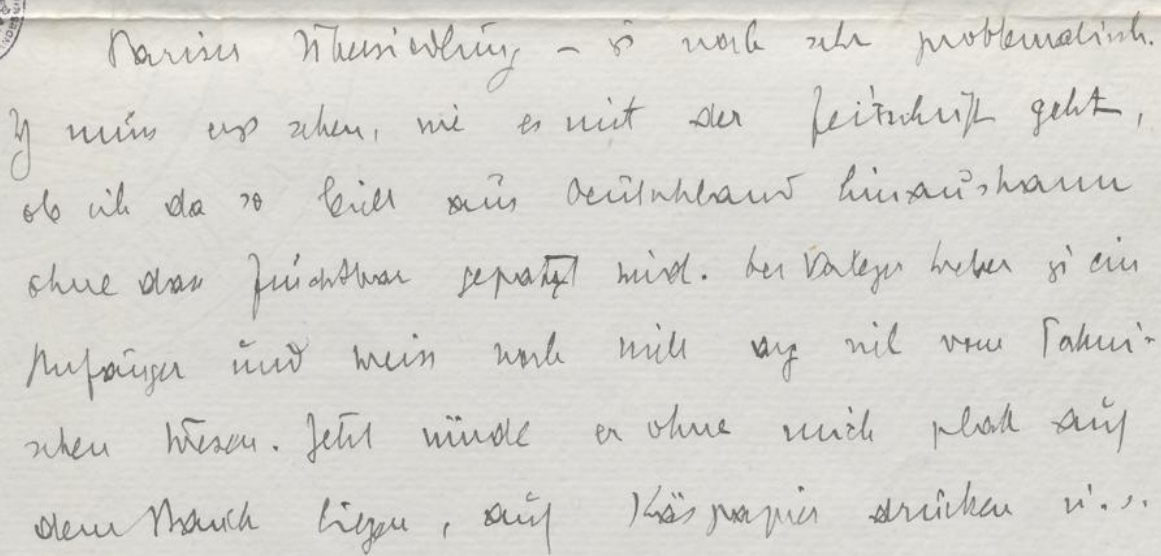 Pariser Übersiedlung – ist noch sehr problematisch.
Ich muss erst sehen, wie es mit der Zeitschrift geht,
ob ich da so leicht aus Deutschland hinauskann
ohne dass furchtbar gepatzt wird. Der Verleger Weber ist ein
Anfänger und weiss noch nicht arg viel vom Techni-
schen Wesen. Jetzt würde er ohne mich platt auf
dem Bauch liegen, auf Käspapier drucken u.s.